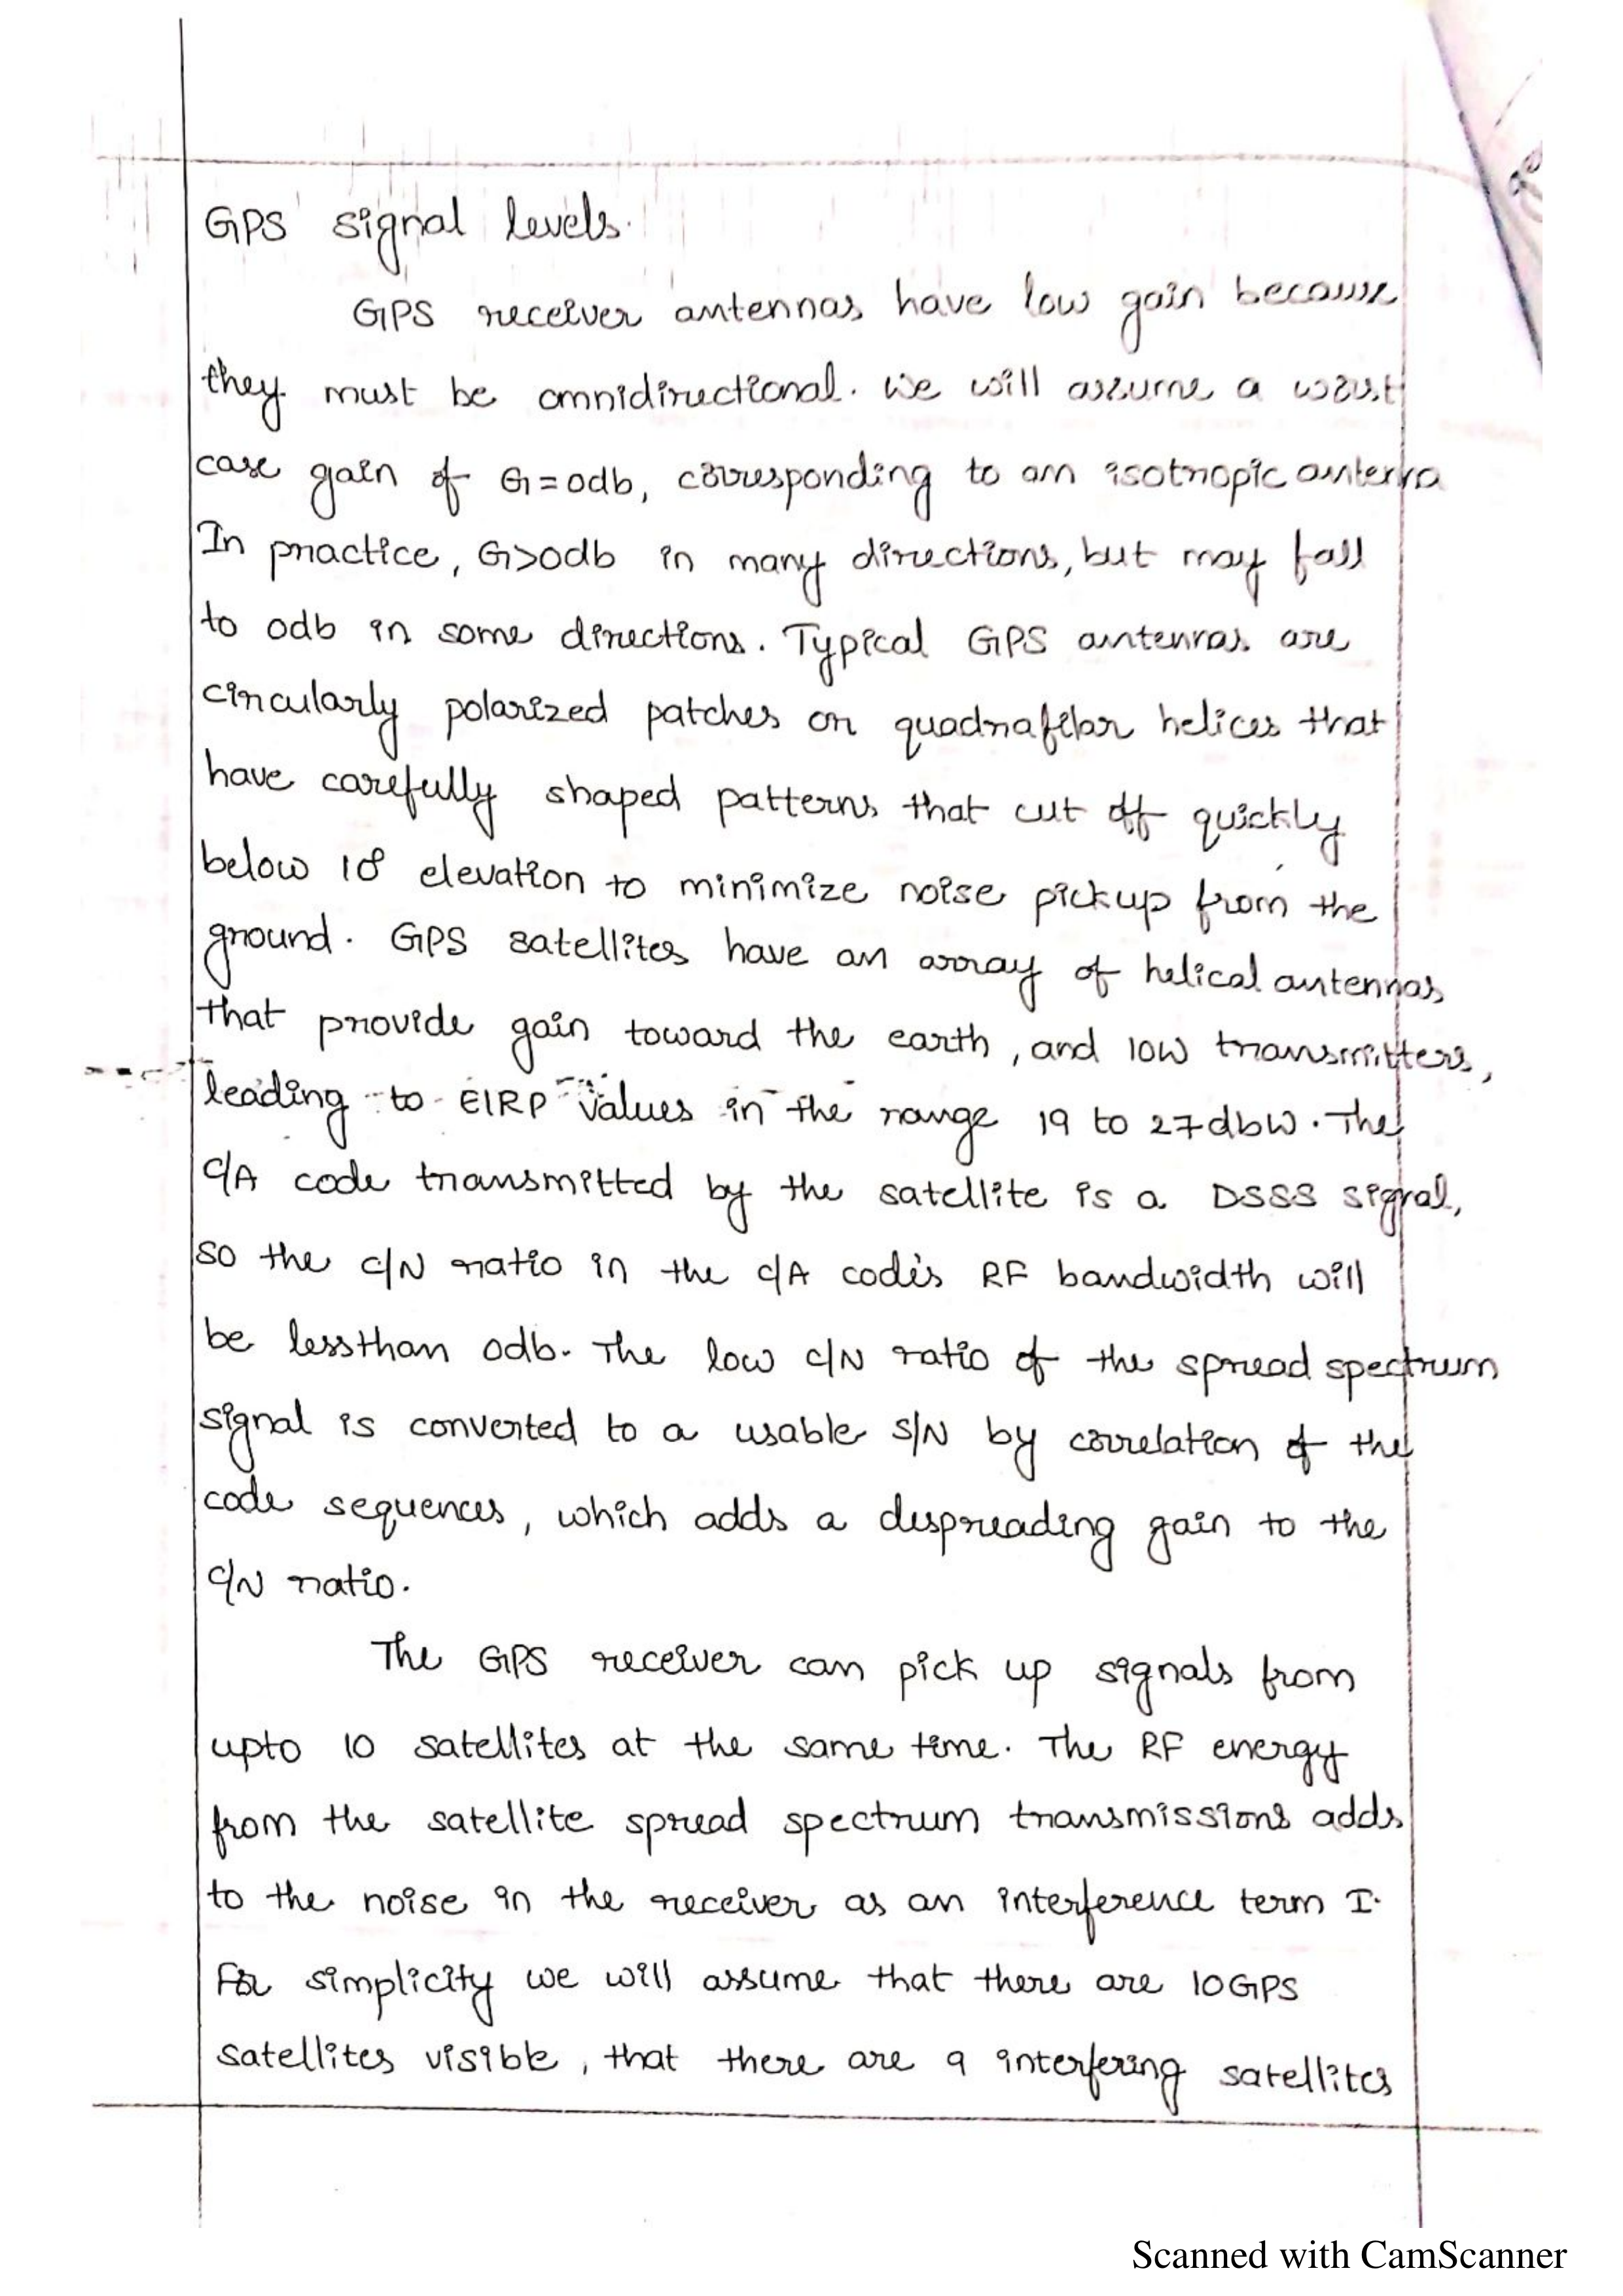 GPS signal levels.
GPS receiver antennas have low gain because
they must be omnidirectional. We will assume a worst
case gain of G=0db, corresponding to an isotropic antenna
In practice, G>0db in many directions, but may fall
to 0db in some directions. Typical GPS antennas are
circularly polarized patches or quadrafilar helices that
have carefully shaped patterns that cut off quickly
below 10° elevation to minimize noise pickup from the
ground. GPS satellites have an array of helical antennas
that provide gain toward the earth, and 10W transmitters,
leading to EIRP values in the range 19 to 27dbW. The
C/A code transmitted by the satellite is a DSSS signal,
so the C/N ratio in the C/A code's RF bandwidth will
be lessthan 0db. The low C/N ratio of the spread spectrum
signal is converted to a usable S/N by correlation of the
code sequences, which adds a despreading gain to the
C/N ratio.
The GPS receiver can pick up signals from
upto 10 satellites at the same time. The RF energy
from the satellite spread spectrum transmissions adds
to the noise in the receiver as an interference term I.
For simplicity we will assume that there are 10GPS
satellites visible, that there are 9 interfering satellites
Scanned with CamScanner